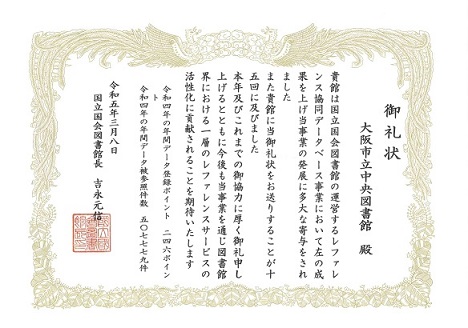 御礼状
大阪市立中央図書館 殿
貴館は国立国会図書館の運営するレファレ
ンス協同データベース事業において左の成
果を上げ当事業の発展に多大な寄与をされ
ました
また貴館に当御礼状をお送りすることが十
五回に及びました
本年及びこれまでの御協力に厚く御礼申し
上げるとともに今後も当事業を通じ図書館
界における一層のレファレンスサービスの
活性化に貢献されることを期待いたします
令和四年の年間データ登録ポイント 二四六ポイン
ト
令和四年の年間データ被参照件数 五〇七七七九件
令和五年三月八日
国立国会図書館長 吉永元信